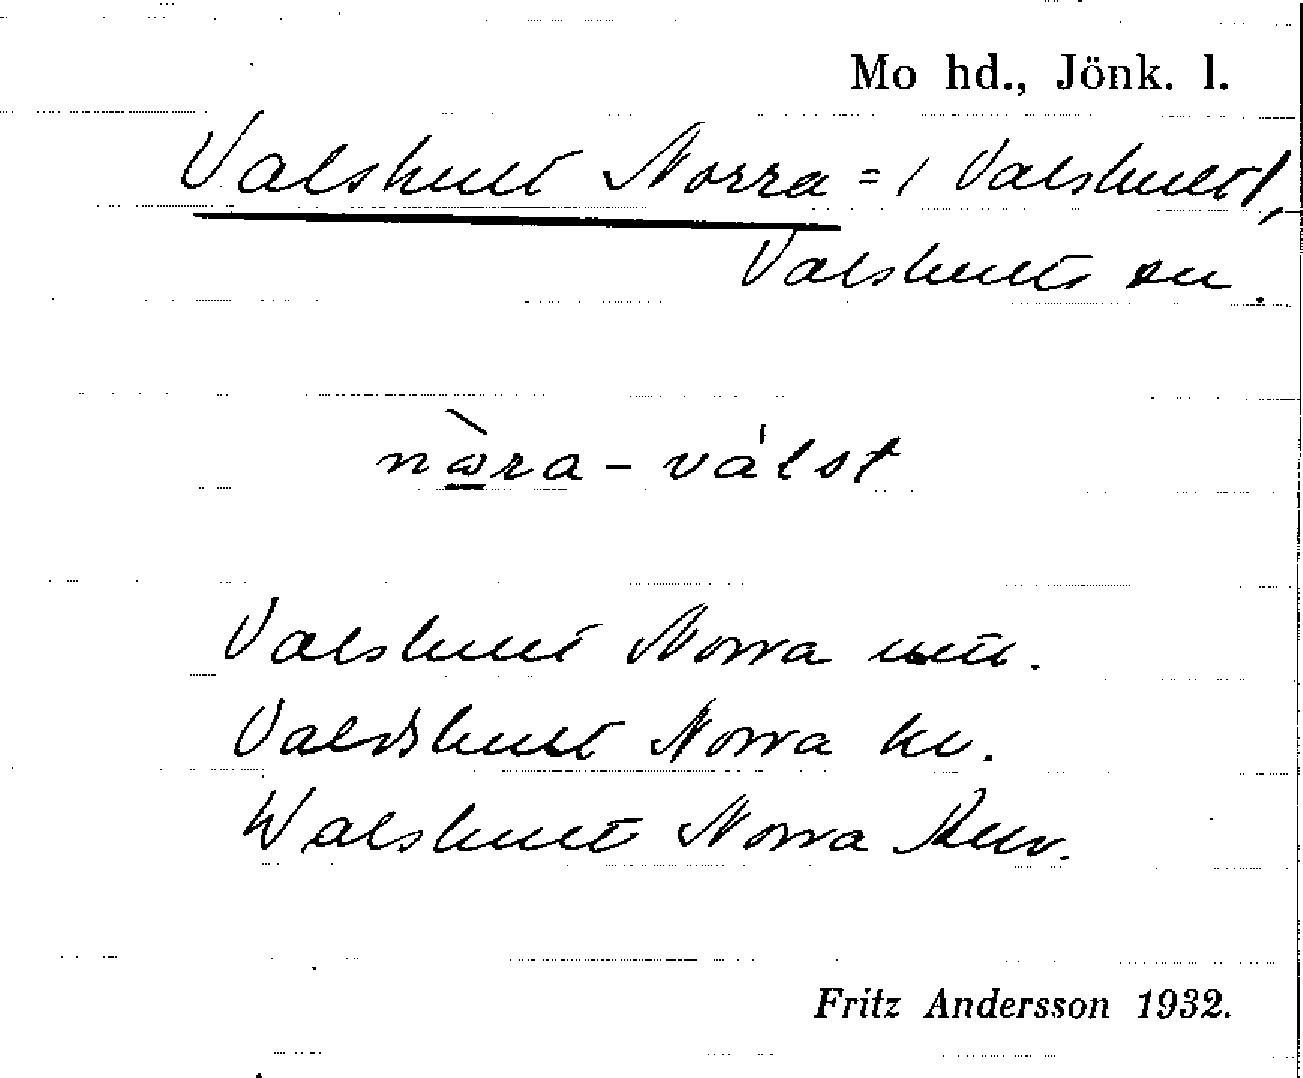 Mo hd., Jönk. l.
Valshult Norra = / Valshult/,
Valshults su.
nꞷ̱̀ra - vá'lst
Valshult Norra
Valdshult Norra kv.
Walshult Norra
Fritz Andersson 1932.